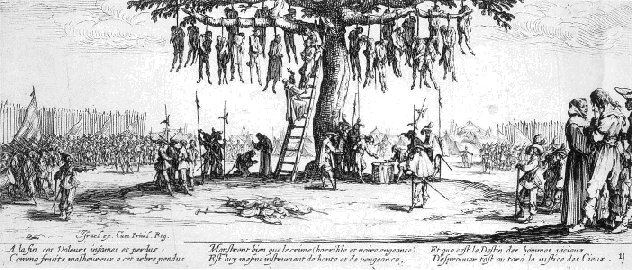 Israel ex. Cum Privil. Reg.
A la fin ces Voleurs infames et perdus
Comme fruits malheureux a cet arbre pendus
Monstrent bien que le crime (horrible et noire engeance)
Est luy mesme instrument de honte et de vengeance,
Et que cest le Destin des hommes vicieux
Desprouver tost ou tard la iustice des Cieux.
11